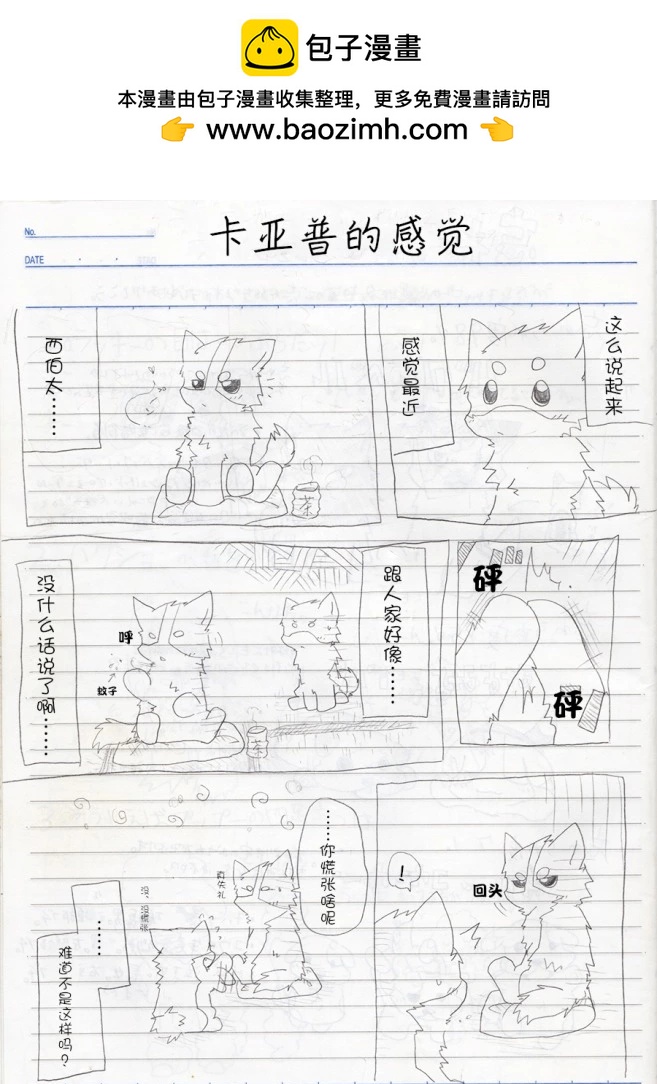 包子漫畫
本漫畫由包子漫畫收集整理，更多免費漫畫請訪問
👉 www.baozimh.com 👈
No.
DATE
卡亚普的感觉
这么说起来
感觉最近
西伯太……
茶
砰
砰
跟人家好像……
呼
蚊子
茶
没什么话说了啊……
！
回头
……你慌张啥呢
真失礼
没，没慌张
……
难道不是这样吗？